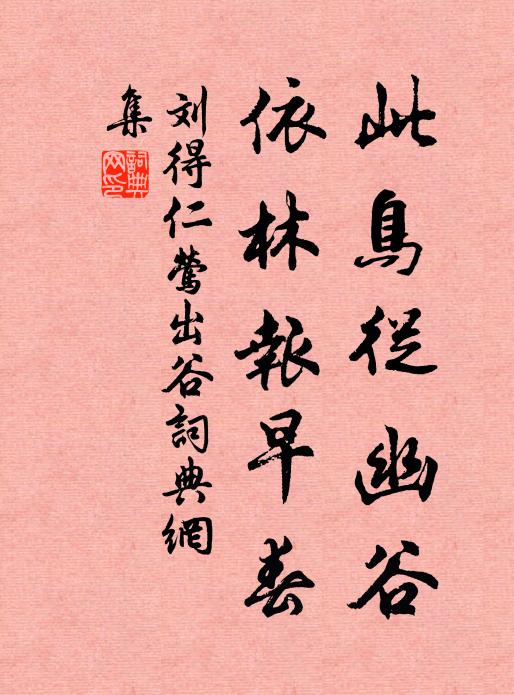 此鳥從幽谷
依林報早春
刘得仁莺出谷詞典網
集
詞典
网印